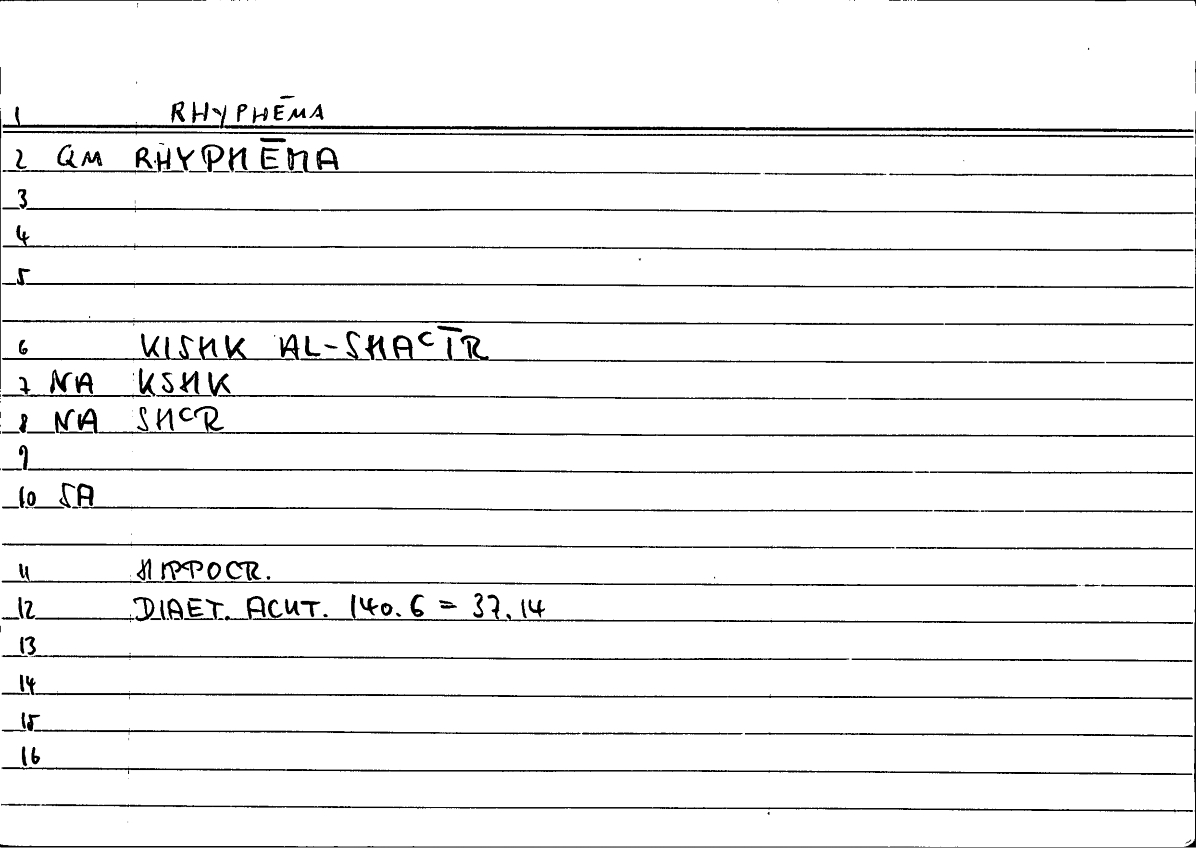 1 RHYPHĒMA
2 QM RHYPHĒMA
3
4
5
6 KISHK AL-SHAᶜĪR
7 NA KSHK
8 NA SHᶜR
9
10 SA
11 HIPPOCR.
12 DIAET. ACUT. 140.6 = 37.14
13
14
15
16